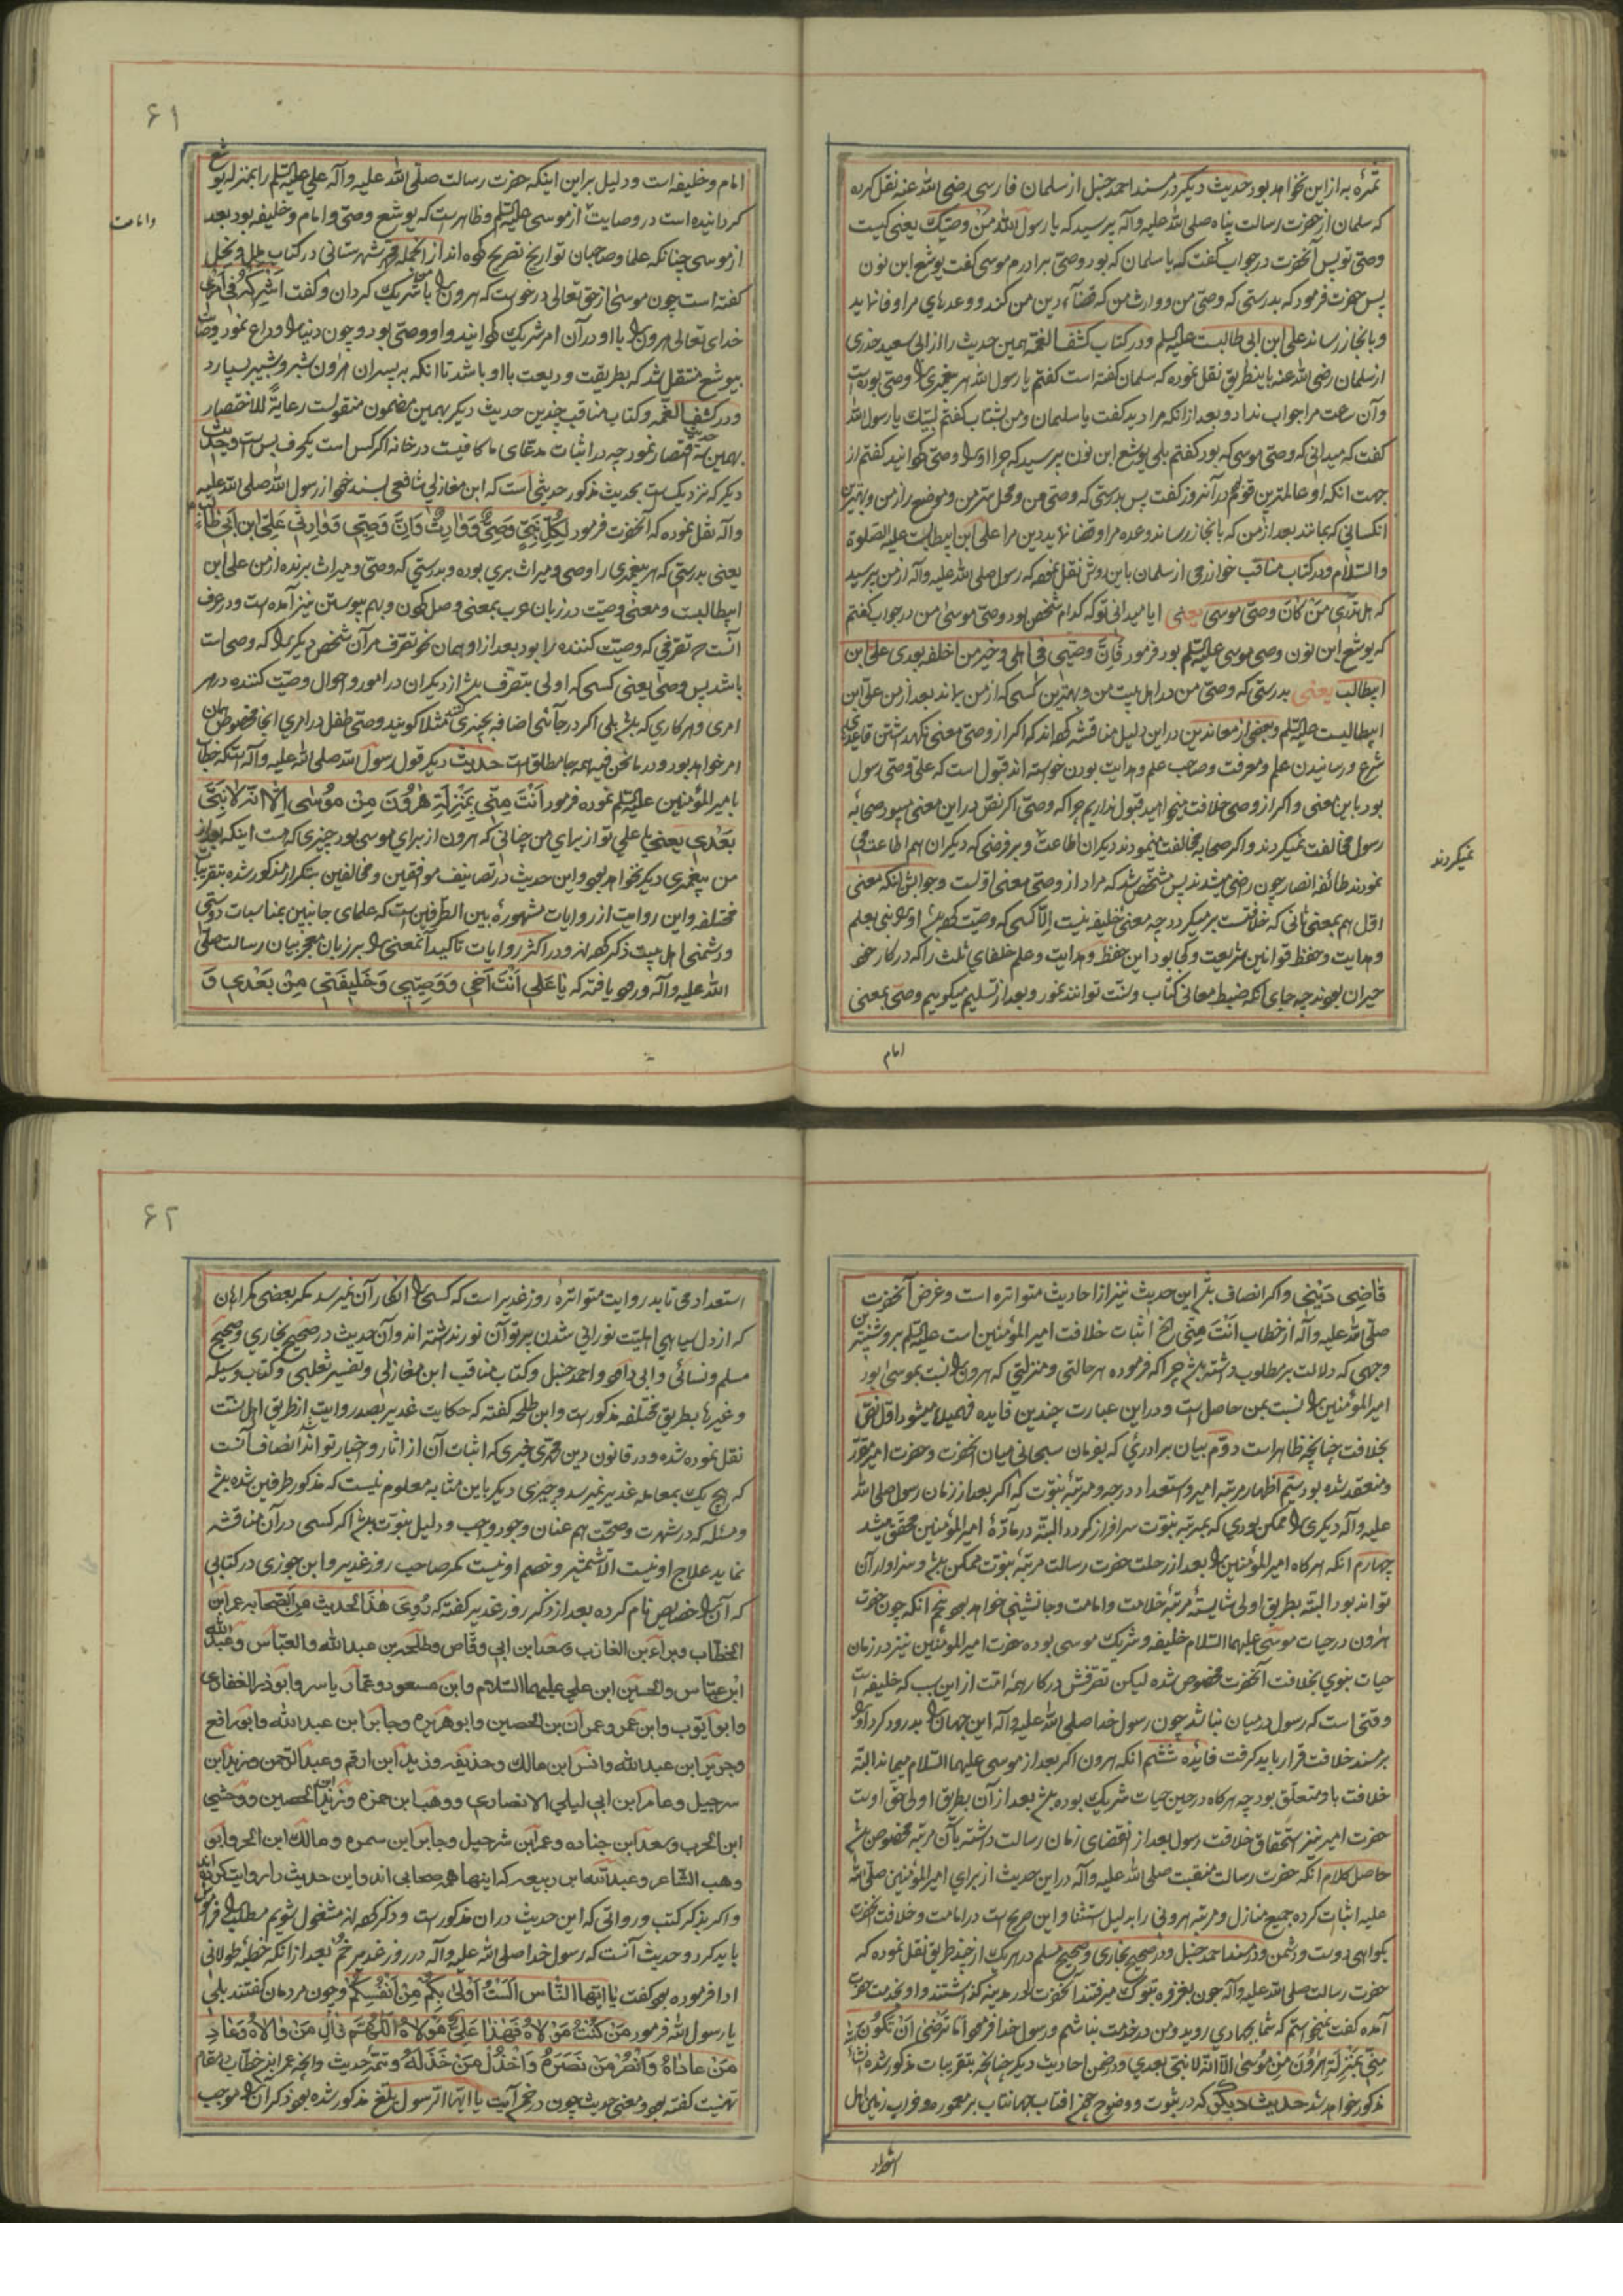 ثمره به ازاین نخواهد بود حدیث دیگر در مسند احمد حنبل از سلمان فارسی رضی الله عنه نقل کرده
که سلمان از حضرت رسالت پناه صلی الله علیه وآله پرسید که یا رسول الله من وصیک یعنی کیست
وصی تو پس آنحضرت در جواب گفت که یا سلمان که بود وصی برادرم موسی گفت یوشع ابن نون
پس حضرت فرمود که بدرستی که وصی من ووارث من که قضآء دین من کند ووعدهای مرا وفا نماید
وبانجاز رساند علی ابن ابی طالبست علیه السلم ودر کتاب کشف الغمه همین حدیث را از ابی سعید خدری
از سلمان رضی الله عنه باینطریق نقل نموده که سلمان گفته است گفتم یا رسول الله هر پیغمبری را وصی بوده است
وآن ساعت مرا جواب نداد وبعد ازانکه مرا دید گفت یا سلیمان ومن بشتاب گفتم لبیک یا رسول الله
گفت که میدانی که وصی موسی که بود گفتم بلی یوشع ابن نون پرسید که چرا اورا وصی گردانید گفتم از
جهت انکه او عالمترین قوم در آنروز گفت پس بدرستی که وصی من ومحل سر من وموضع راز من وبهترین
انکسانی که بمانند بعد از من که بانجاز رساند وعده مرا وقضا نماید دین مرا علی ابن ابیطالبست علیه الصلوة
والسلام ودر کتاب مناقب خوارزمی از سلمان باین روش نقل نموده که رسول صلی الله علیه وآله از من پرسید
که هل تدری من کان وصی موسی یعنی ایا میدانی تو که کدام شخص بود وصی موسی من در جواب گفتم
که یوشع ابن نون وصی موسی علیه السلم بود فرمود فان وصیی فی اهلی وخیر من اخلفه بعدی علی بن
ابیطالب یعنی بدرستی که وصی من در اهل بیت من وبهترین کسی که از من بماند بعد از من علی ابن
ابیطالبست علیه السلم وبعضی از معاندین در این دلیل مناقشه کرده‌اند که اگر از وصی معنی نگهداشتن قاعدهٔ
شرع ورسانیدن علم ومعرفت وصاحب علم وهدایت بودن خواسته اند قبول است که علی وصی رسول
بود باین معنی واگر از وصی خلافت میخواهید قبول نداریم چرا که وصی اگر نص در این معنی میبود صحابهٔ
رسول مخالفت نمیکردند واگر صحابه مخالفت مینمودند دیگران اطاعت وبر فرضی که دیگران هم اطاعت می
نمودند طائفه انصار چون راضی میشدند پس مشخص شد که مراد از وصی معنی اولست وجوابش انکه معنی
اول هم بمعنی ثانی که خلافتست بر میگردد چه معنی خلیفه نیست الا کسی که وصیت کرده باشد اورا نبی بعلم
وهدایت وحفظ قوانین شریعت وکجا بود این حفظ وهدایت وعلم خلفای ثلث را که در کار خود
حیران بودند چه جای انکه ضبط معانی کتاب وسنت توانند نمود وبعد از تسلیم میگوییم وصی بمعنی
نمیکردند
امام
۶۱
امام وخلیفه است ودلیل بر این اینکه حضرت رسالت صلی الله علیه وآله علی علیه السلم را بمنزله یوشع
گردانیده است در وصایت از موسی علیه السلم وظاهر است که یوشع وصی وامام وخلیفه بود بعد
وامامت
از موسی چنانکه علما وصاحبان تواریخ تصریح کرده‌اند از انجمله محمد شهرستانی در کتاب ملل ونحل
گفته است چون موسی از حق تعالی درخواست که هرون را با من شریک گردان وگفت اشرکه فی امری
خدای تعالی هرون را با او در آن امر شریک گردانید واو وصی بود وچون دنیا را وداع نمود وصایت
بیوشع منتقل شد که بطریقت ودیعت با او باشد تا انکه به پسران هارون شبر وشبیر بسپارد
ودر کشف الغمه وکتاب مناقب چندین حدیث دیگر بهمین مضمون منقولست رعایة للاختصار
بهمین سه حدیث اقتصار نمود چه در اثبات مدعای ما کافیست در خانه اگر کس است یکحرف بس است وحدیث
دیگر که نزدیک است بحدیث مذکور حدیثی است که ابن مغازلی شافعی بسند خود از رسول الله صلی الله علیه
وآله نقل نموده که آنحضرت فرمود لکل نبی وصی ووارث وان وصیی ووارثی علی ابن ابی طالب
یعنی بدرستی که هر پیغمبری را وصی ومیراث بری بوده وبدرستی که وصی ومیراث برنده از من علی ابن
ابیطالبست ومعنی وصیت در زبان عرب بمعنی وصل کردن وبهم پیوستن نیز آمده است ودر عرف
آنست که تصرفی که وصیت کننده را بود بعد از او همان نحو تصرف مر آن شخص دیگر را که وصی است
باشد پس وصی یعنی کسی که اولی بتصرف باشد از دیگران در امور واحوال وصیت کننده در هر
امری وهر کاری که باشد بلی اگر در جائی اضافه بچیزی کنند مثلا گویند وصی طفل در امری انجا مخصوص همان
امر خواهد بود ودر ما نحن فیه همه جا مطلق است حدیث دیگر قول رسول الله صلی الله علیه وآله است که خطاب
بامیر المؤمنین علیه السلم نموده فرمود انت منی بمنزلة هرون من موسی الا انه لا نبی
بعدی یعنی یا علی تو از برای من چنانی که هرون از برای موسی بود چیزی که هست اینکه بعد از
من پیغمبری دیگر نخواهد بود واین حدیث در تصانیف موافقین ومخالفین بتکرار مذکور شده بتقریبات
مختلفه واین روایت از روایات مشهورهٔ بین الطرفین است که علمای جانبین بمناسبات دوستی
ودشمنی اهل بیت ذکر کرده‌اند ودر اکثر روایات تاکیدا لمعنی را بر زبان معجز بیان رسالت صلی
الله علیه وآله ورود یافته که یا علی انت اخی ووصیی وخلیفتی من بعدی و
قاضی دینی واگر انصاف باشد این حدیث نیز از احادیث متواتره است وغرض آنحضرت
صلی الله علیه وآله از خطاب انت منی الخ اثبات خلافت امیر المؤمنین است علیه السلم بروشنترین
وجهی که دلالت بر مطلوب داشته باشد چرا که فرموده هر حالتی ومنزلتی که هرون را نسبت بموسی بود
امیر المؤمنین را نسبت بمن حاصل است ودر این عبارت چندین فایده فهمیده میشود اول نص
بخلافت چنانچه ظاهر است دوم بیان برادری که بفرمان سبحانی میان آنحضرت وحضرت امیر مقرر
ومنعقد شده بود سیم اظهار مرتبه امیر واستعداد درجه ومرتبهٔ نبوت که اگر بعد از زمان رسول صلی الله
علیه وآله دیگری را ممکن بودی که بمرتبه نبوت سرافراز گردد البته در مادهٔ امیر المؤمنین محقق میشد
چهارم انکه هر گاه امیر المؤمنین را بعد از رحلت حضرت رسالت مرتبهٔ نبوت ممکن باشد وسزاوار آن
تواند بود البته بطریق اولی شایستهٔ مرتبهٔ خلافت وامامت وجانشینی خواهد بود پنجم انکه چون حضرت
هارون در حیات موسی علیهما السلام خلیفه وشریک موسی بوده حضرت امیر المؤمنین نیز در زمان
حیات نبوی بخلافت آنحضرت مخصوص شده لیکن تصرفش در کار همهٔ امت از این سبب که خلیفه است
وقتی است که رسول در میان نباشد چون رسول خدا صلی الله علیه وآله این جهان را بدرود کرد اورا
بر مسند خلافت قرار باید گرفت فایده ششم انکه هرون اگر بعد از موسی علیهما السلام میماند البته
خلافت باو متعلق بود چه هر گاه در حین حیات شریک بوده باشد بعد از آن بطریق اولی حق اوست
حضرت امیر نیز استحقاق خلافت رسول بعد از انقضای زمان رسالت داشته بآن مرتبه مخصوص باشد
حاصل کلام آنکه حضرت رسالت منقبت صلی الله علیه وآله در این حدیث از برای امیر المؤمنین صلی الله
علیه اثبات کرده جمیع منازل ومرتبه هرونی را بدلیل استثنا واین صریح است در امامت وخلافت آنحضرت
بگواهی دوست ودشمن ودر مسند احمد حنبل ودر صحیح بخاری وصحیح مسلم در هر یک از چند طریق نقل نموده که
حضرت رسالت صلی الله علیه وآله چون بغزوه تبوک میرفتند آنحضرت را در مدینه گذاشتند واو بخدمت حضرت
آمده گفت نمیخواستم که شما بجهادی روید ومن در خدمت نباشم ورسول خدا فرمود اما ترضی ان تکون
منی بمنزلة هرون من موسی الا انه لا نبی بعدی ودر ضمن احادیث دیگر چنانچه بتقریبات مذکور شده
مذکور خواهد شد حدیث دیگر که در ثبوت ووضوح همچو افتاب جهانتاب بر معمور وخراب زمین اهل
استعداد
۶۲
استعداد می تابد روایت متواترهٔ روز غدیر است که کسی را انکار آن نمیرسد مگر بعضی گمراهان
که از دل سیاهی اهلیت نورانی شدن بپرتو آن نور نداشته اند وآن حدیث در صحیح بخاری وصحیح
مسلم ونسائی وابی داود واحمد حنبل وکتاب مناقب ابن مغازلی وتفسیر ثعلبی وکتاب وسیله
وغیرها بطریق مختلفه مذکور است وابن طلحه گفته که حکایت غدیر بصد روایت از طریق اهل سنت
نقل نموده شده ودر قانون دین محمدی خبری که اثبات آن از اثار واخبار تواند انصاف آنست
که هیچ یک بمعامله غدیر نمیرسد وچیزی دیگر باین مثابه معلوم نیست که مذکور طرفین شده باشد
ومسئله که در شهرت وصحت هم عنان وجود واجب ودلیل نبوت باشد اگر کسی در آن مناقشه
نماید علاج او نیست الا شمشیر وخصم او نیست مگر صاحب روز غدیر وابن جوزی در کتابی
که آنرا خصایص نام کرده بعد از ذکر روز غدیر گفته که روی هذا الحدیث من الصحابه عمر ابن
الخطاب وبراء بن العازب وسعد ابن ابی وقاص وطلحه بن عبد الله والعباس وعبد الله
ابن عباس والحسین ابن علی علیهما السلام وابن مسعود وعمار یاسر وابو ذر الغفاری
وابو ایوب وابن عمر وعمران بن الحصین وابو هریره وجابر ابن عبد الله وابو رافع
وجریر ابن عبد الله وانس ابن مالک وحذیفه وزید ابن ارقم وعبد الرحمن ویزید ابن
سرجیل وعامر ابن ابی لیلی الانصاری ووهب ابن حمزه وزید ابن الحصین ووحشی
ابن الحرب وسعد ابن جناده وعمر ابن شرحبیل وجابر ابن سمره ومالک ابن الحر وابو
وهب الشاعر وعبد الله ابن ربیعه که اینها همه صحابی اند واین حدیث را روایت کرده اند
واگر بذکر کتب ورواتی که این حدیث در ان مذکور است وذکر کرده‌اند مشغول شویم مطلب را فراموش
باید کرد وحدیث آنست که رسول خدا صلی الله علیه وآله در روز غدیر خم بعد از انکه خطبهٔ طولانی
ادا فرموده بود گفت یا ایها الناس الست اولی بکم من انفسکم وچون مردمان گفتند بلی
یا رسول الله فرمود من کنت مولاه فهذا علی مولاه اللهم وال من والاه وعاد
من عاداه وانصر من نصره واخذل من خذله وتتمهٔ حدیث وانچه عمر ابن خطاب در مقام
تهنیت گفته بود ومعنی حدیث چون در ضمن آیت یا ایها الرسول بلغ مذکور شده بود ذکر آن را موجب